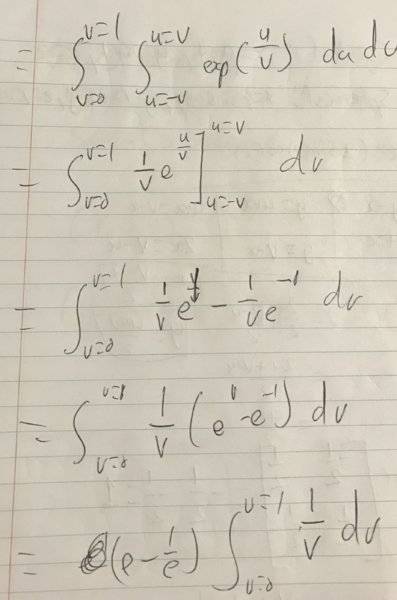 = ∫_{v=0}^{v=1} ∫_{u=-v}^{u=v} exp(u/v) du dv
= ∫_{v=0}^{v=1} 1/v e^{u/v} ]_{u=-v}^{u=v} dv
= ∫_{v=0}^{v=1} 1/v e^{1} - 1/v e^{-1} dv
= ∫_{v=0}^{v=1} 1/v (e^{1} - e^{-1}) dv
= (e - 1/e) ∫_{v=0}^{v=1} 1/v dv